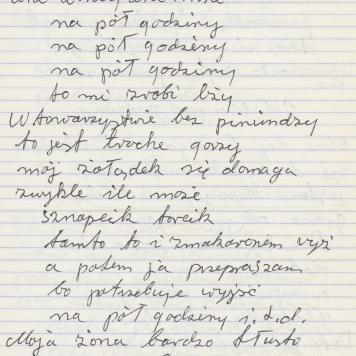 na pół godziny
na pół godziny
na pół godziny
to mi zrobi lży
W towarzystwie bez pinindzy
to jest troche gorzy
mój żołądek się domaga
zwykle ile może
sznapcik torcik
tamto to i z makaronem
a potem ja przepraszam
bo potrzebuje wyjść
na pół godziny i.t.d.
Moja żona bardzo tłusto